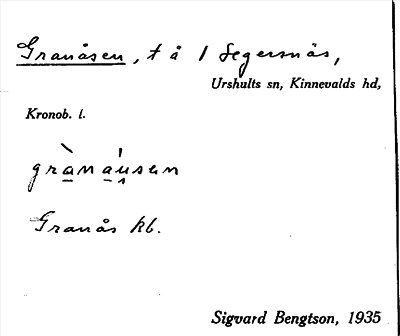 Granåsen, t å 1 Segersnäs,
Urshults sn, Kinnevalds hd,
Kronob. l.
grànáusen
Granås kb.
Sigvard Bengtson, 1935